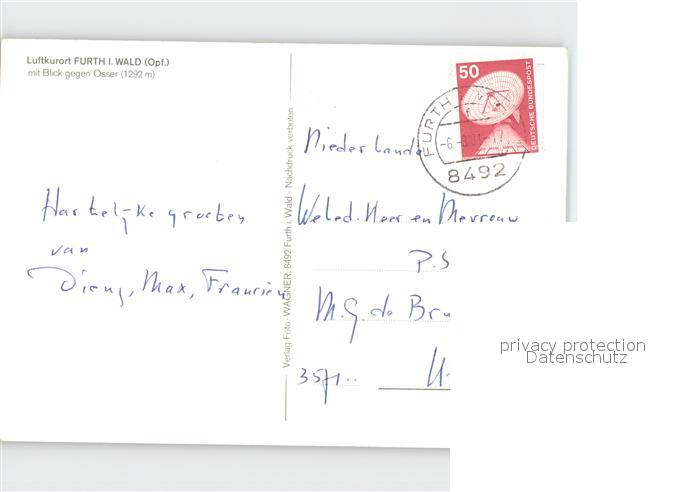 Luftkurort FURTH I. WALD (Opf.)
mit Blick gegen Osser (1292 m)
Hartelijke groeten
van
Max, Francien
Verlag Foto - WAGNER, 8492 Furth i. Wald - Nachdruck verboten
50
DEUTSCHE BUNDESPOST
FURTH
8492
Niederlande
Weled. Heer en Mevrouw
P.S
M.G. de Bru
357
privacy protection
Datenschutz